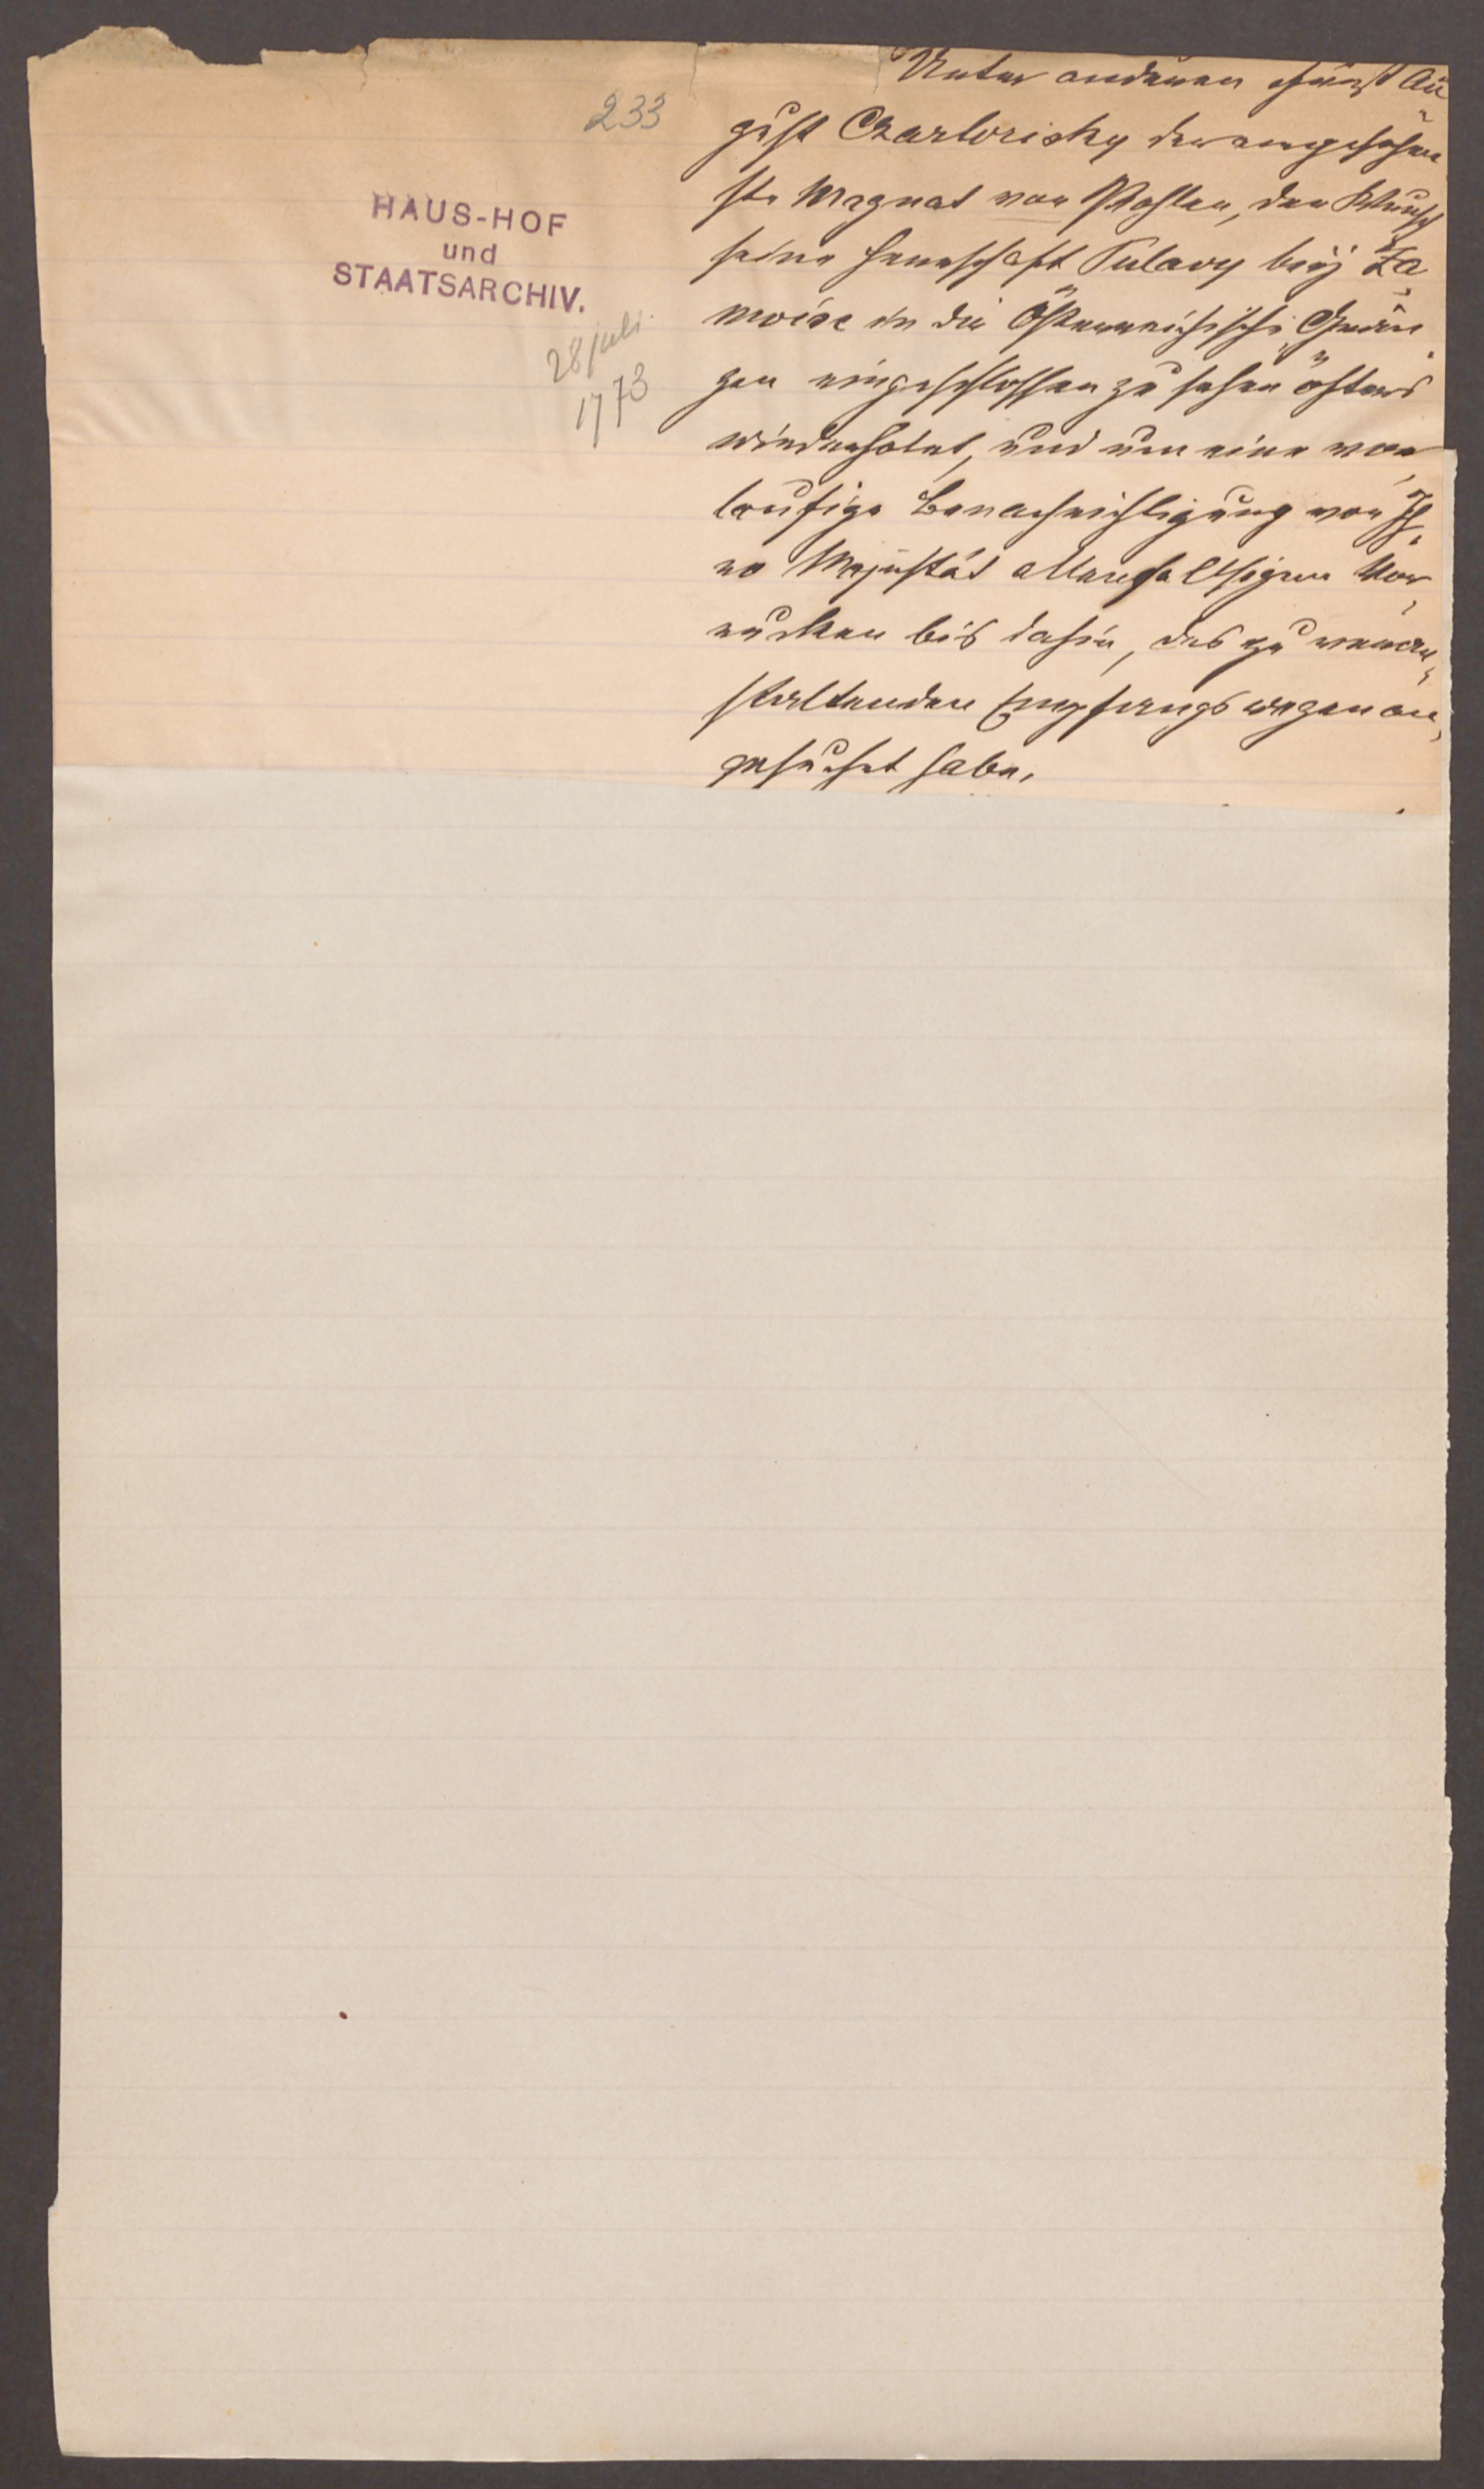 233
HAUS-HOF
und
STAATSARCHIV.
28 juli
1773
Unter anderen Fürst Au-
gust Czartorisky der angesehen
ste Magnat von Pohlen, den Wunsch
seine Herrschaft Pulavy beÿ Za-
moisc in die Österreichische Grän-
zen eingeschlossen zu sehen öfters
wiederholet, und um eine vor-
laufige Benachrichtigung von Ih-
ro Majestät allenfallsigem Vor-
rucken bis dahin, des zu veran-
staltenden Empfangs wegen an-
gesuchet habe.